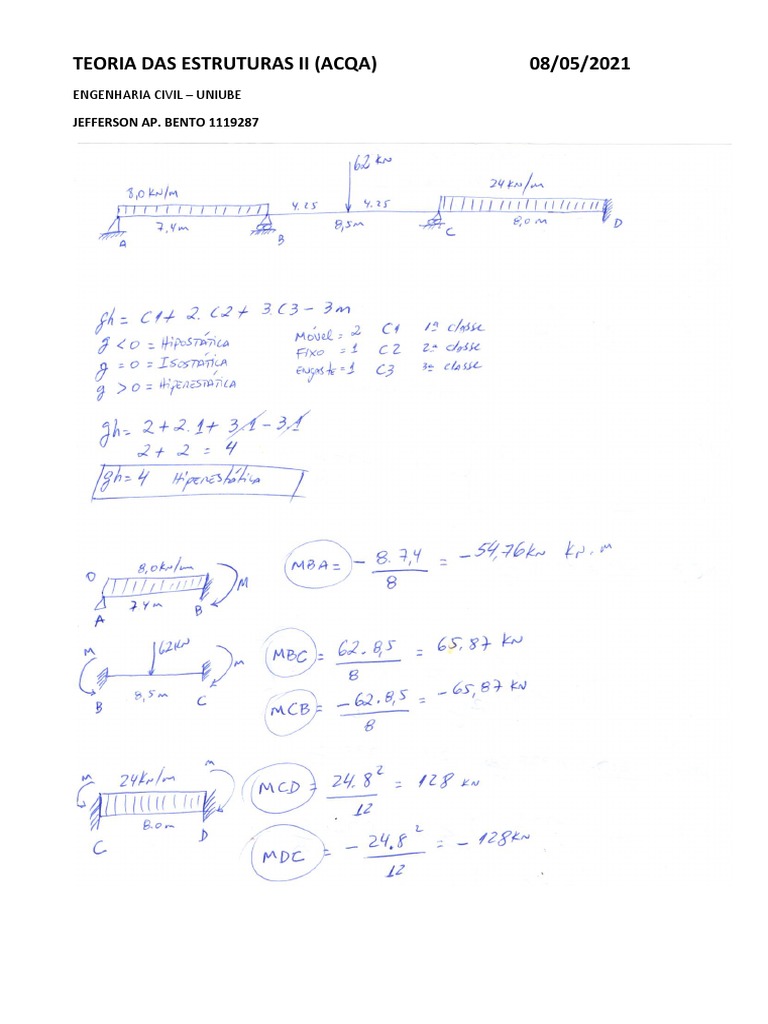 TEORIA DAS ESTRUTURAS II (ACQA) 08/05/2021
ENGENHARIA CIVIL – UNIUBE
JEFFERSON AP. BENTO 1119287
62 KN
8,0 KN/m 24 KN/m
4.25 4.25
7,4m 8,5m 8,0m
A B C D
gh = C1 + 2.C2 + 3.C3 - 3m
g < 0 = HIPOSTÁTICA
g = 0 = ISOSTÁTICA
g > 0 = HIPERESTÁTICA
Móvel = 2 C1 1ª classe
Fixo = 1 C2 2ª classe
engaste = 1 C3 3ª classe
gh = 2 + 2.1 + 3.1 - 3.1
2 + 2 = 4
gh = 4 HIPERESTÁTICA
0 8,0KN/m M
7,4m
A B
MBA = - 8.7,4 / 8 = -54,76KN KN.m
M 62KN M
8,5m
B C
MBC = 62.8,5 / 8 = 65,87 KN
MCB = -62.8,5 / 8 = -65,87 KN
M 24KN/m M
8.0m
C D
MCD = 24.8² / 12 = 128 KN
MDC = - 24.8² / 12 = - 128KN